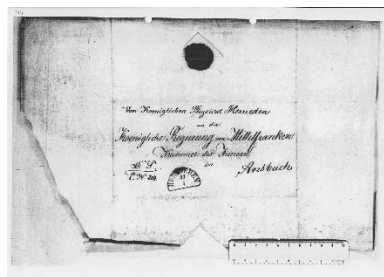 Vom Königlichen Physicat Herrieden
an die
Königliche Regierung von Mittelfranken
Kammer des Innern
in
Ansbach
HERRIEDEN